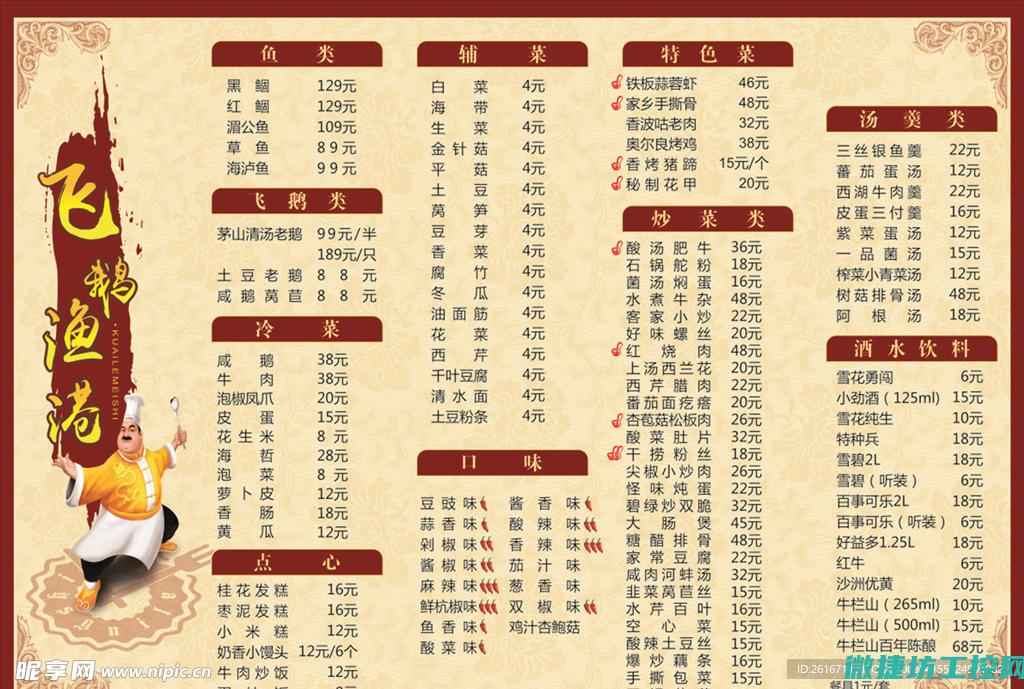 飞鹅渔港
·KUAILEMEISHI
鱼 类
黑 鮰 129元
红 鮰 129元
湄公鱼 109元
草 鱼 89元
海泸鱼 99元
飞 鹅 类
茅山清汤老鹅 99元/半
189元/只
土豆老鹅 88元
咸鹅莴苣 88元
冷 菜
咸 鹅 38元
牛 肉 38元
泡椒凤爪 20元
皮 蛋 15元
花生米 8元
海 哲 28元
泡 菜 8元
萝卜皮 12元
香 肠 18元
黄 瓜 12元
点 心
桂花发糕 16元
枣泥发糕 16元
小米糕 12元
奶香小馒头 12元/6个
牛肉炒饭 12元
辅 菜
白 菜 4元
海 带 4元
生 菜 4元
金针菇 4元
平 菇 4元
土 豆 4元
莴 笋 4元
豆 芽 4元
香 菜 4元
腐 竹 4元
冬 瓜 4元
油面筋 4元
花 菜 4元
西 芹 4元
千叶豆腐 4元
清水面 4元
土豆粉条 4元
口 味
豆豉味 酱香味
蒜香味 酸辣味
剁椒味 香辣味
酱椒味 茄汁味
麻辣味 葱香味
鲜杭椒味 双椒味
鱼香味 鸡汁杏鲍菇
酸菜味
特 色 菜
铁板蒜蓉虾 46元
家乡手撕骨 48元
香波咕老肉 32元
奥尔良烤鸡 38元
香烤猪蹄 15元/个
秘制花甲 20元
炒 菜 类
酸汤肥牛 36元
石锅舵粉 18元
菌汤焖蛋 16元
水煮牛杂 48元
客家小炒 22元
好味螺丝 20元
红烧肉 48元
上汤西兰花 20元
西芹腊肉 22元
番茄面疙瘩 20元
杏苞菇松板肉 26元
酸菜肚片 32元
干捞粉丝 18元
尖椒小炒肉 26元
怪味炖蛋 22元
碧绿炒双脆 32元
大肠煲 45元
糖醋排骨 48元
家常豆腐 22元
咸肉河蚌汤 32元
韭菜莴苣丝 15元
水芹百叶 16元
空心菜 15元
酸辣土豆丝 15元
爆炒藕条 16元
手撕包菜 15元
汤 羹 类
三丝银鱼羹 22元
蕃茄蛋汤 12元
西湖牛肉羹 22元
皮蛋三付羹 16元
紫菜蛋汤 12元
一品菌汤 15元
榨菜小青菜汤 12元
树菇排骨汤 48元
阿根汤 18元
酒 水 饮 料
雪花勇闯 6元
小劲酒（125ml） 15元
雪花纯生 10元
特种兵 18元
雪碧2L 18元
雪碧（听装） 6元
百事可乐2L 18元
百事可乐（听装） 6元
好益多1.25L 18元
红牛 6元
沙洲优黄 20元
牛栏山（265ml） 10元
牛栏山（500ml） 15元
牛栏山百年陈酿 68元
餐具1元/套
昵享网 www.nipic.cn
微捷坊工控网